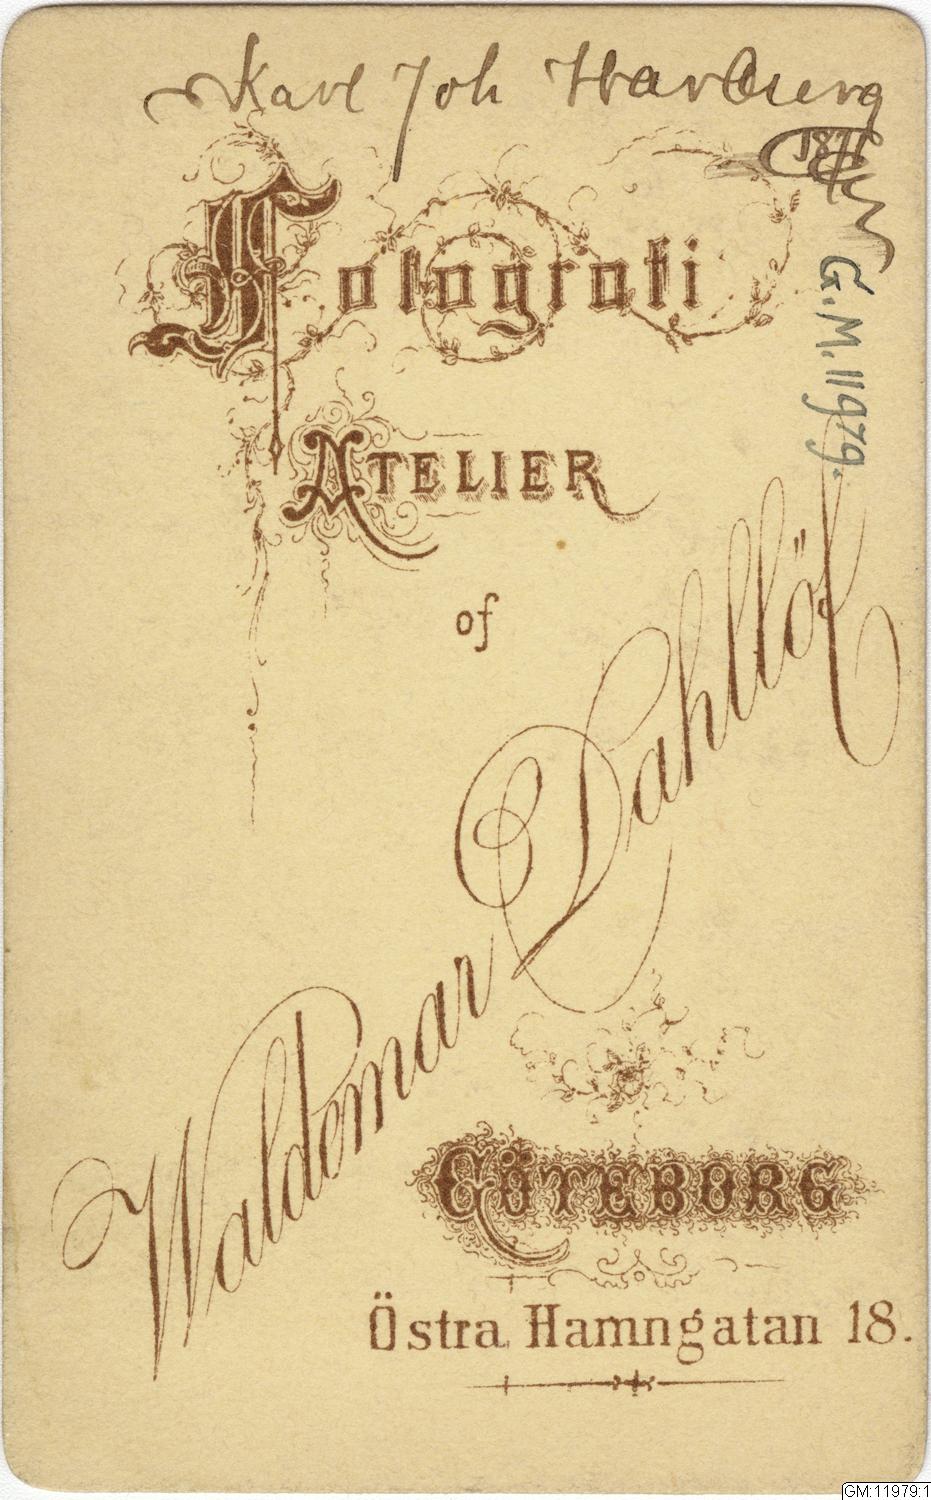 Karl Joh Warburg
Fotografi
ATELIER
of
Waldemar Dahllöf
GÖTEBORG
Östra Hamngatan 18.
G.M. 11979.
GM:11979:1